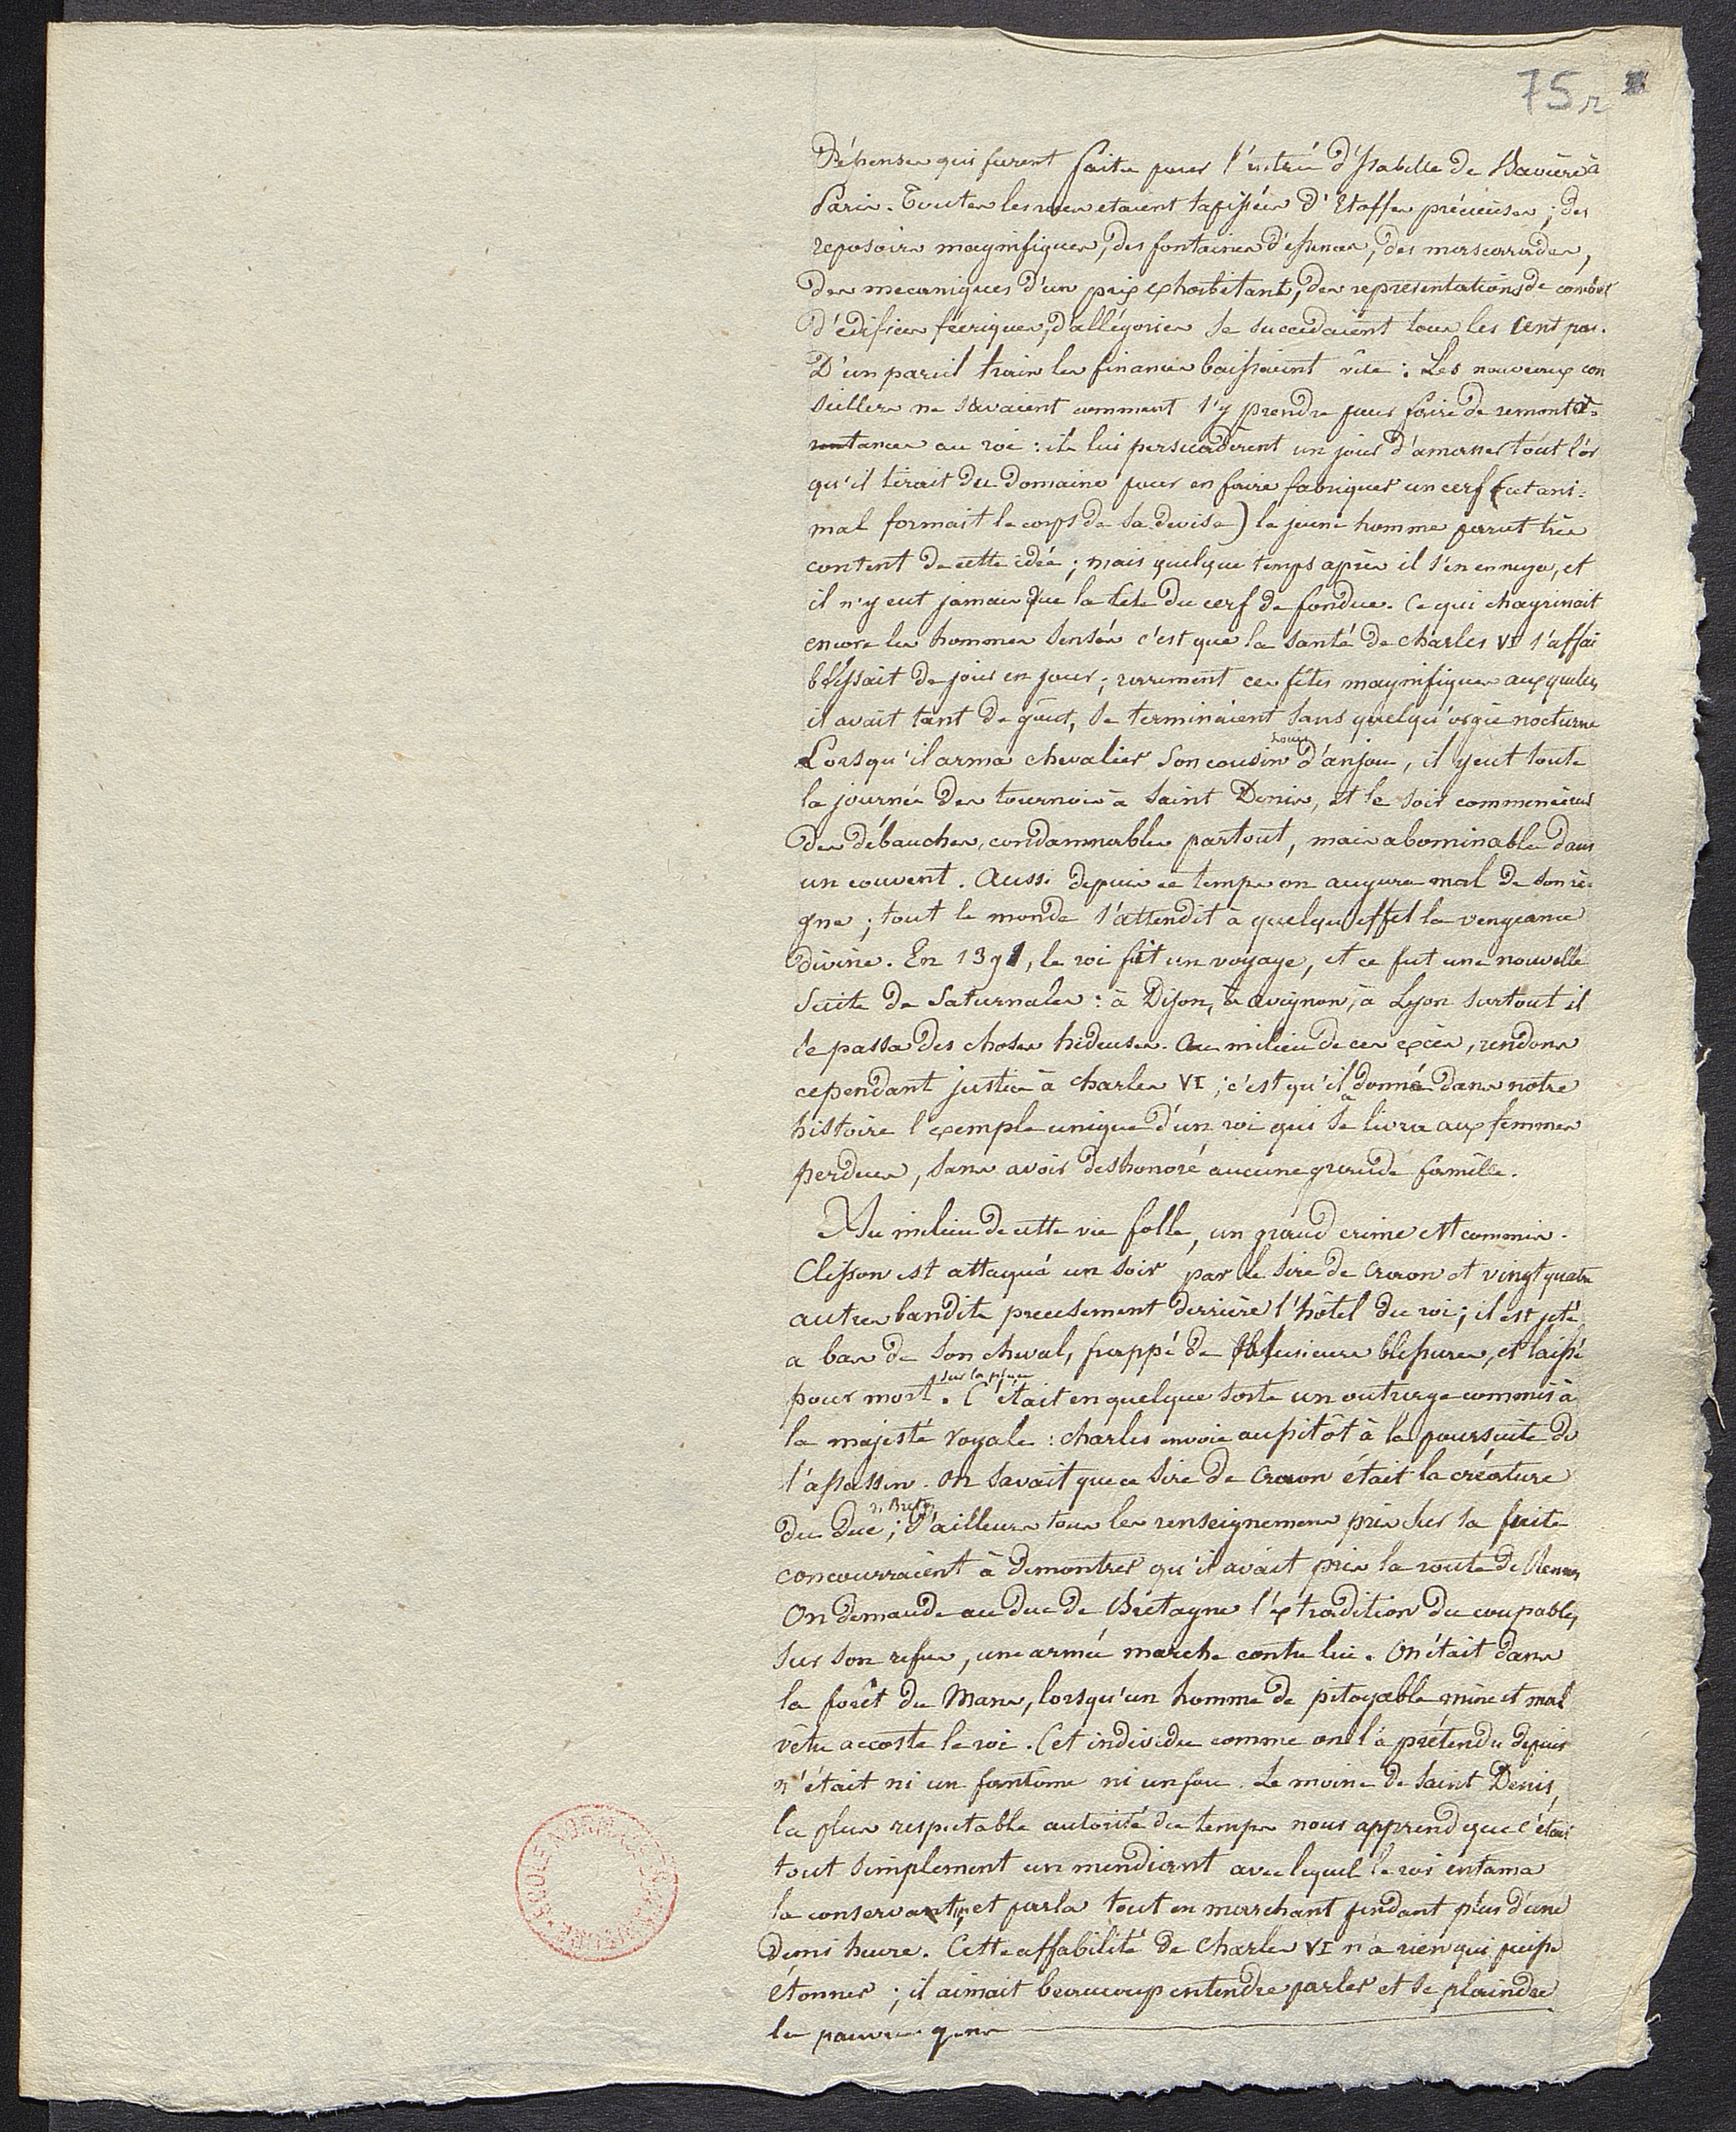 75 r
Dépenses qui furent faites pour l'entrée d'Isabelle de Bavière à
Paris. Toutes les rues etaient tapissées d'Etoffes précieuses ; des
reposoirs magnifiques, des fontaines d'essences, des mascarades,
des mecaniques d'un prix exhorbitant, des representations de combats
d'edifices féeriques, d'allégories se succedaient tous les cent pas.
D'un pareil train les finances baissaient vîte : Les nouveaux con
seillers ne savaient comment s'y prendre pour faire de remont
rances au roi : ils lui persuadèrent un jour d'amasser tout l'or
qu'il tirait du domaine pour en faire fabriquer un cerf (cet ani-
mal formait le corps de sa devise) le jeune homme parut très
content de cette idée ; mais quelque temps après il s'en ennuya, et
il n'y eut jamais que la tete du cerf de fondue. Ce qui chagrinait
encore les hommes sensés c'est que la santé de charles VI s'affai
blissait de jour en jour ; rarement ces fêtes magnifiques auxquelles
il avait tant de goût, se terminaient sans quelqu'orgie nocturne
Lorsqu'il arma chevalier son cousin Louis d'anjou, il y eut toute
la journée des tournois à Saint Denis, et le soir commencèrent
des débauches, condamnables partout, mais abominables dans
un couvent. Aussi depuis ce temps on augura mal de son rè-
gne ; tout le monde s'attendit à quelqu'effet la vengeance
divine. En 1391, le roi fit un voyage, et ce fut une nouvelle
suite de saturnales : à Dijon, à avignon, à Lyon surtout il
se passa des choses hideuses. Au milieu de ces excès, rendons
cependant justice à charles VI ; c'est qu'il a donné dans notre
histoire l'exemple unique d'un roi qui se livra aux femmes
perdues, sans avoir deshonoré aucune grande famille.
Au milieu de cette vie folle, un grand crime est commis.
Clisson est attaqué un soir par le sire de Craon et vingt quatre
autres bandits precisement derrière l'hôtel du roi ; il est jeté
a bas de son cheval, frappé de plusieurs blessures, et laissé
pour mort sur la place. C'était en quelque sorte un outrage commis à
la majesté royale : charles envoie aussitôt à la poursuite de
l'assassin. On savait que ce sire de Craon était la créature
du duc de Bretagne ; d'ailleurs tous les renseignemens pris sur sa fuite
concourraient à demontrer qu'il avait pris la route de Rennes
On demande au duc de Bretagne l'extradition du coupable,
sur son refus, une armée marche contre lui. On était dans
la forêt du Mans, lorsqu'un homme de pitoyable mine et mal
vêtu accoste le roi. Cet individu comme on l'a prétendu depuis
n'était ni un fantôme ni un fou. Le moine de Saint Denis,
la plus respectable autorité du temps nous apprend que c'était
tout simplement un mendiant avec lequel le roi entama
la conservation, et parla tout en marchant pendant plus d'une
demi heure. Cette affabilité de Charles VI n'a rien qui puisse
étonner ; il aimait beaucoup entendre parler et se plaindre
les pauvres gens